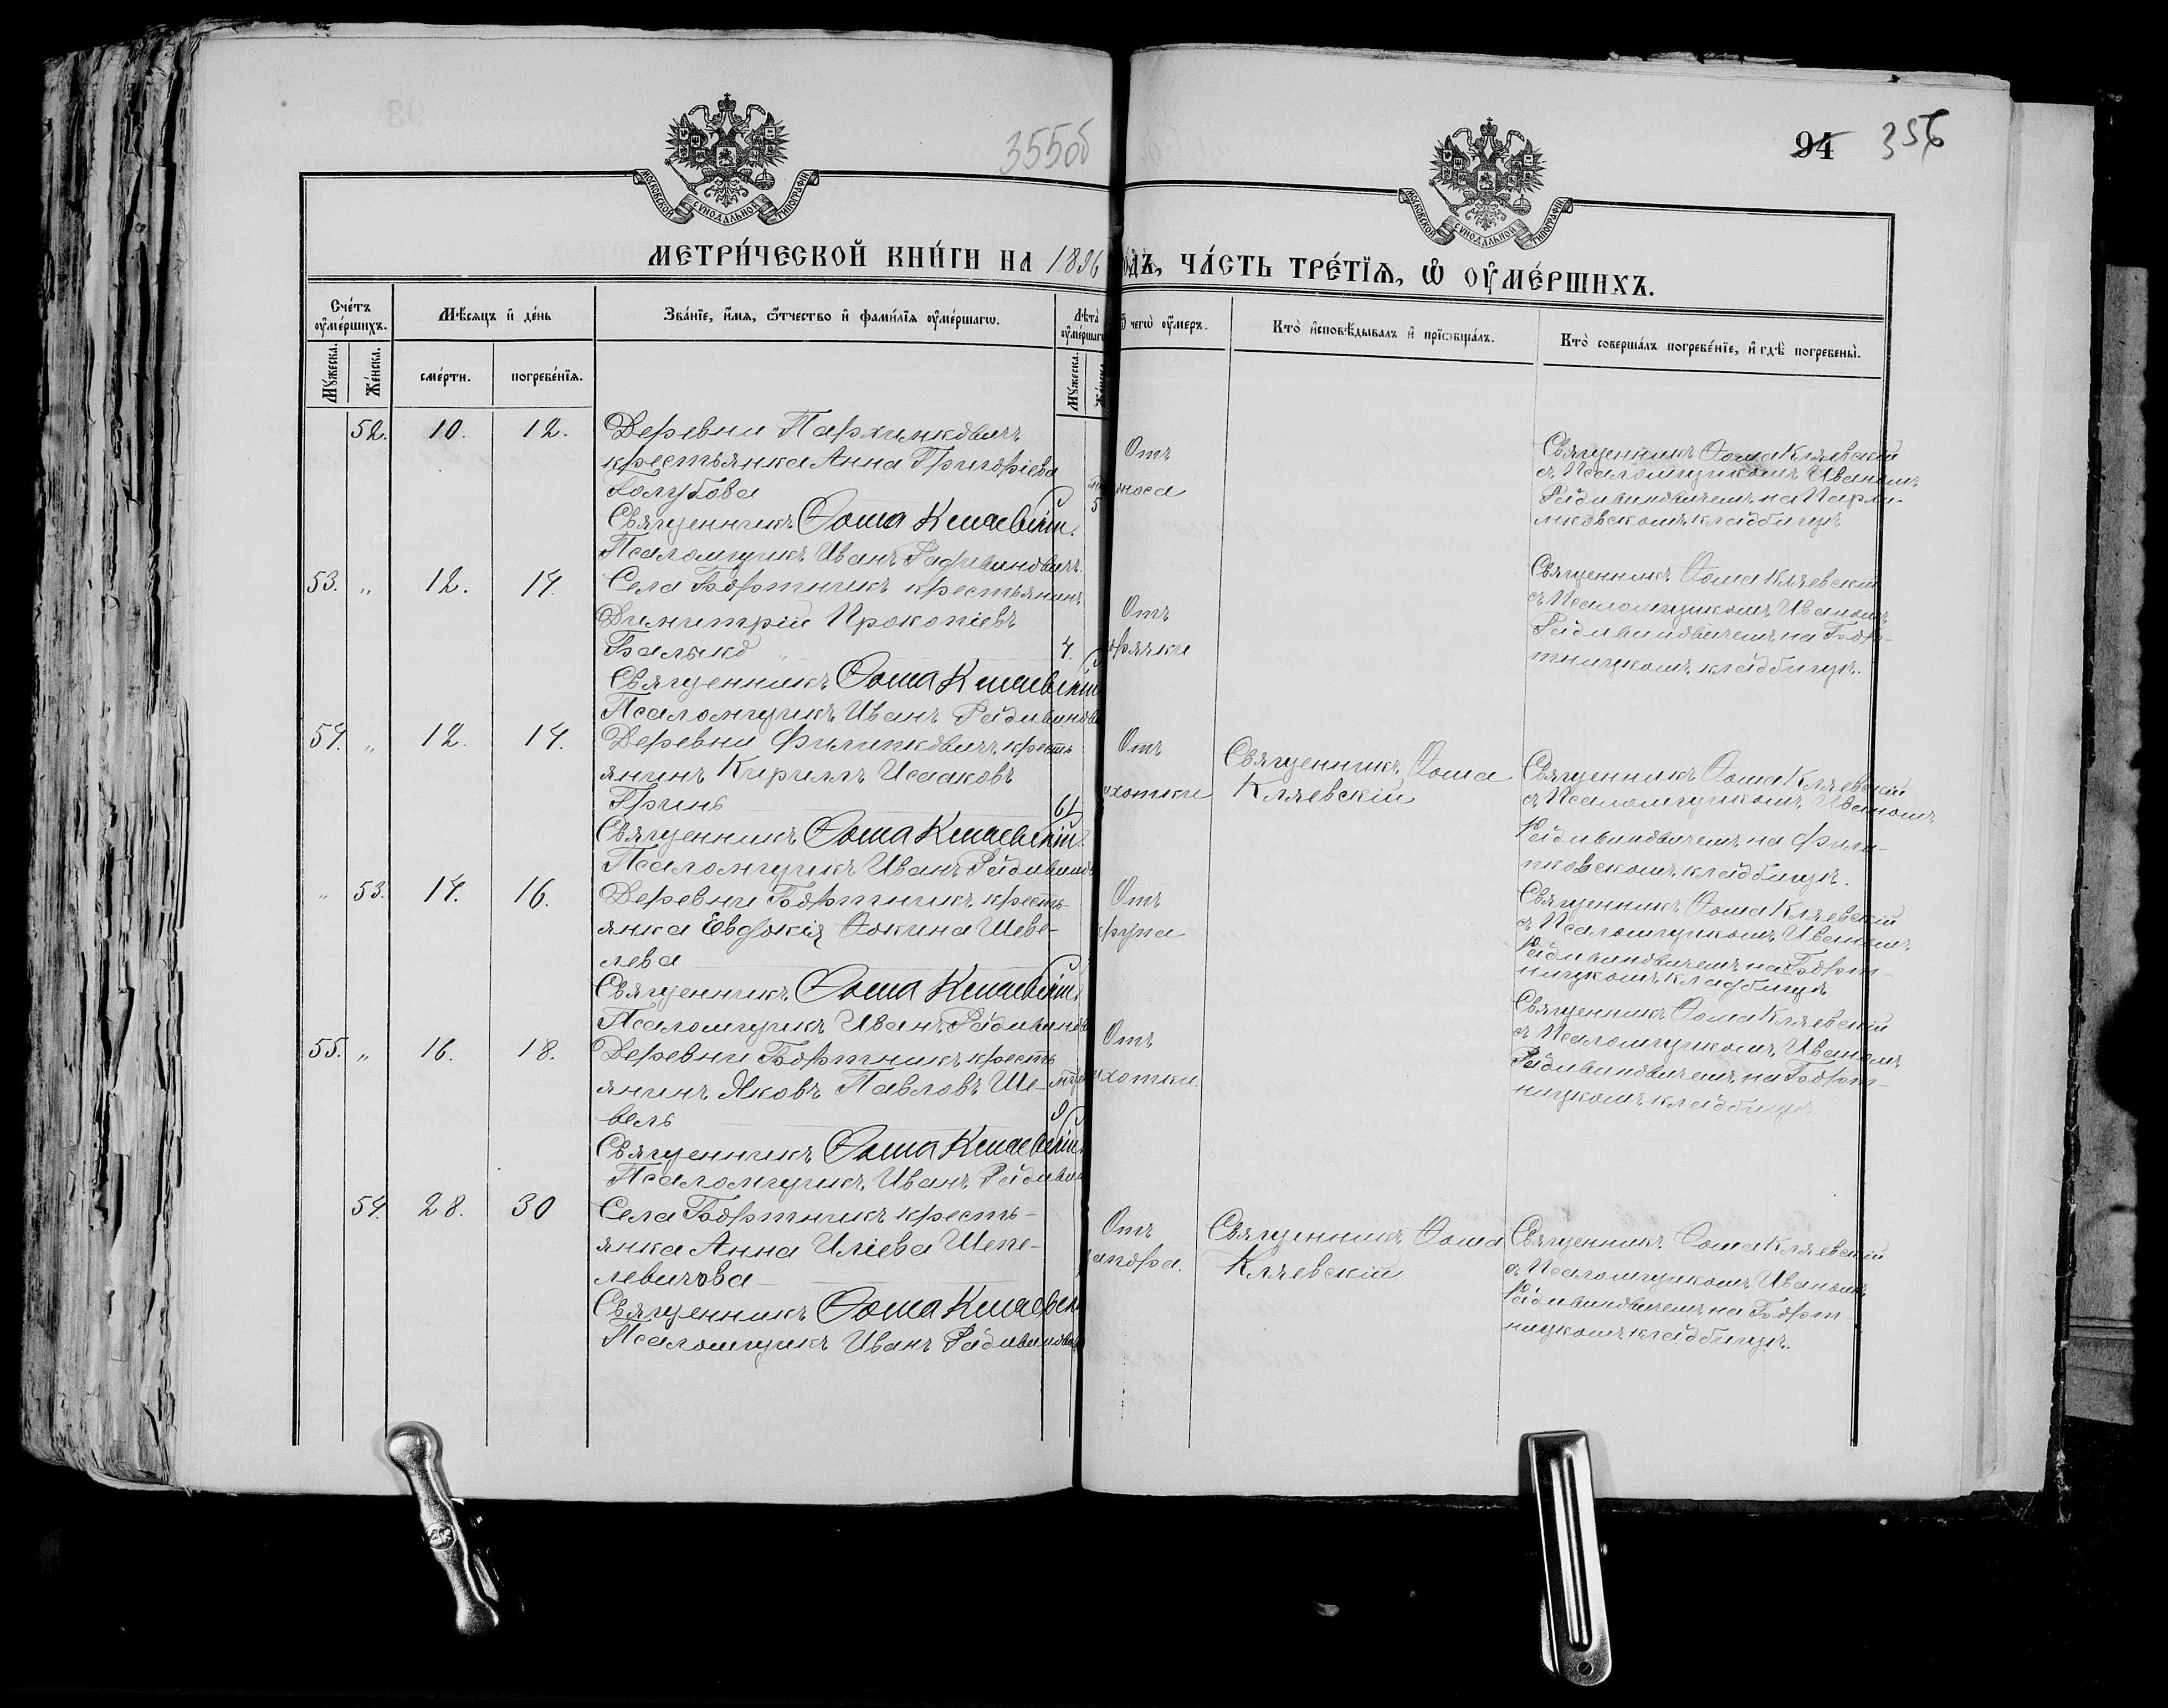 355об
94 356
МОСКОВСКОЙ СѴНОДАЛЬНОЙ ТИПОГРАФІИ
МОСКОВСКОЙ СѴНОДАЛЬНОЙ ТИПОГРАФІИ
МЕТРИ́ЧЕСКОЙ КНИ́ГИ НА 1896
ОДЪ, ЧА́СТЬ ТРЕ́ТЇѦ, Ѡ ОУМЕ́РШИХЪ.
Сче́тъ оумершихъ.
Мѣсяцъ и де́нь
Зва́нїе, и́мя, ѿтчество и фами́лїя оумершагѡ.
Лѣта оумершагѡ
чегѡ оумеръ.
Кто̀ исповѣдывалъ и прїобща́лъ.
Кто̀ соверша́лъ погребе́нїе, и гдѣ погребены̀.
Мужеска.
Женска.
сме́рти.
погребе́нїя.
Мужеска.
Женска
52. 10. 12.
Деревни Пархимковичъ
крестьянка Анна Григорiева
Голубова
5
Священникъ Ѳома Кляевскій.
Псаломщикъ Иванъ Радивиновичъ.
Отъ
оноса
Священникъ Ѳома Кляевскій
съ Псаломщикомъ Иваномъ
Радивиновичемъ на Пархи-
мковскомъ кладбищѣ
53. „ 12. 14.
Села Бортникъ крестьянинъ
Димитрій Прокопіевъ
Балыко „ 4.
Священникъ Ѳома Кляевскій
Псаломщикъ Иванъ Радивинови
Отъ
орячки
Священникъ Ѳома Кляевскій
съ Псаломщикомъ Иваномъ
Радивиновичемъ на Бор-
тницкомъ кладбищѣ.
54. „ 12. 14.
Деревни Филипковичъ кресть
янинъ Кириллъ Исааковъ
Гринь 61
Священникъ Ѳома Кляевскій.
Псаломщикъ Иванъ Радивинов
Отъ
ахотки
Священникъ Ѳома
Кляевскій
Священникъ Ѳома Кляевскій
съ Псаломщикомъ Иваномъ
Радивиновичемъ на Фили-
пковскомъ кладбищѣ.
„ 53. 14. 16.
Деревни Бортникъ кресть-
янка Евдокія Ѳокина Шеве-
лева
Священникъ Ѳома Кляевскій
Псаломщикъ Иванъ Радивинов
Отъ
крупа
Священникъ Ѳома Кляевскій
съ Псаломщикомъ Иваномъ
Радивиновичемъ на Борт-
ницкомъ кладбищѣ
55. „ 16. 18.
Деревни Бортникъ кресть
янинъ Яковъ Павловъ Ше-
вель 9
Священникъ Ѳома Кляевскій
Псаломщикъ Иванъ Радивин
Отъ
ахотки.
Священникъ Ѳома Кляевскій
съ Псаломщикомъ Иваномъ
Радивиновичемъ на Борт-
ницкомъ кладбищѣ.
54. 28. 30
Села Бортникъ кресть-
янка Анна Иліева Шепе-
левичова
Священникъ Ѳома Кляевск
Псаломщикъ Иванъ Радивинови
Отъ
апора.
Священникъ Ѳома
Кляевскій
Священникъ Ѳома Кляевскій
съ Псаломщикомъ Иваномъ
Радивиновичемъ на Борт
ницкомъ кладбищѣ.